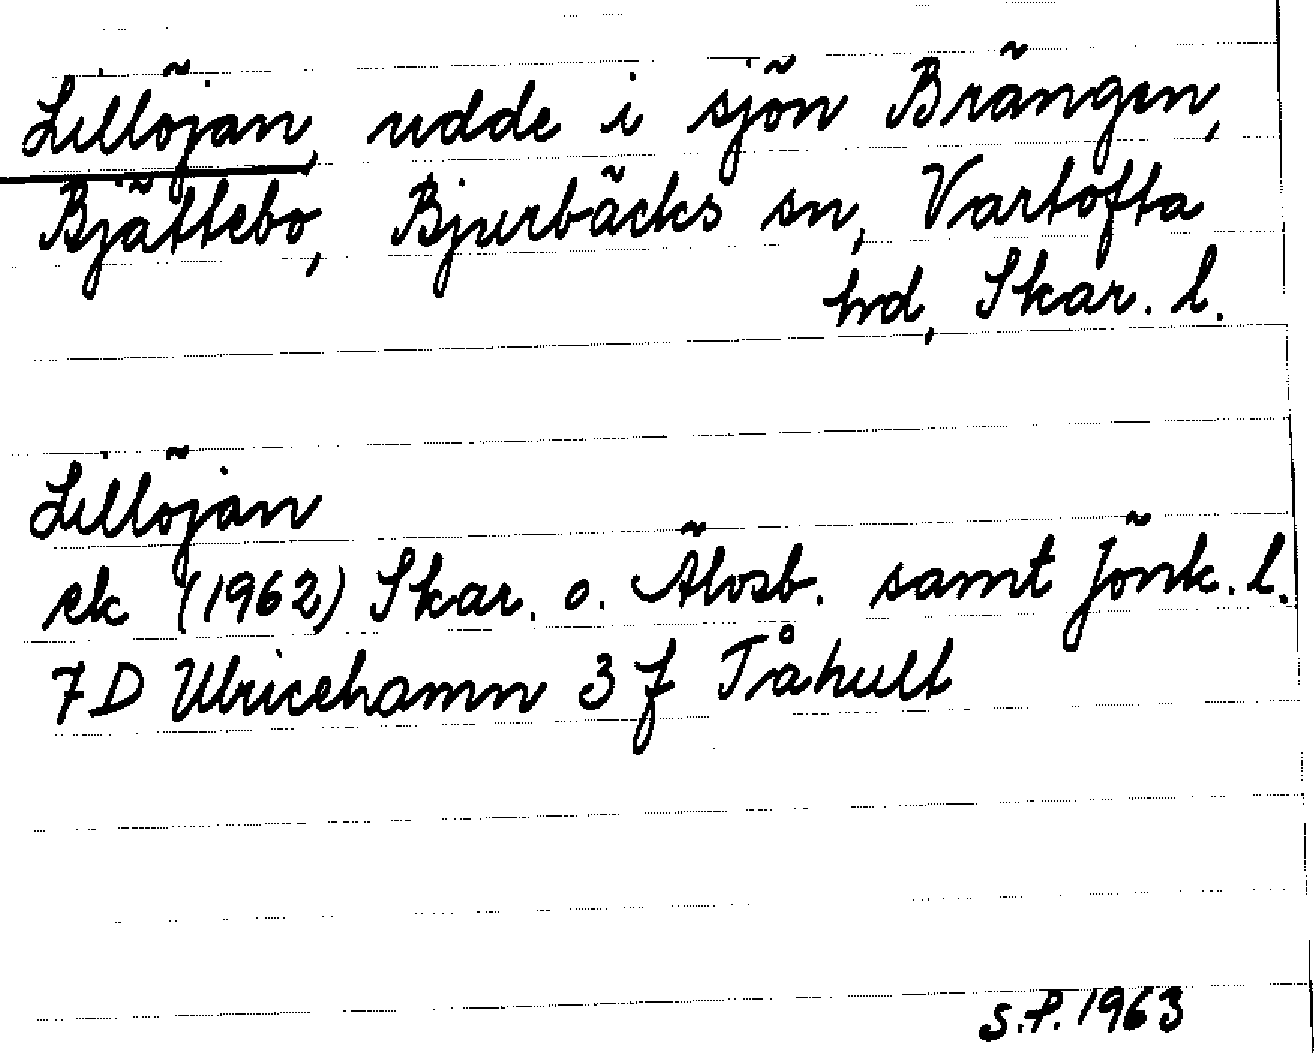 Lillöjan, udde i sjön Brängen,
Bjättebo, Bjurbäcks sn, Vartofta
hd, Skar. l.
Lillöjan
ek (1962) Skar. o. Älvsb. samt Jönk. l.
7 D Ulricehamn 3 f Tåhult
S.P. 1963